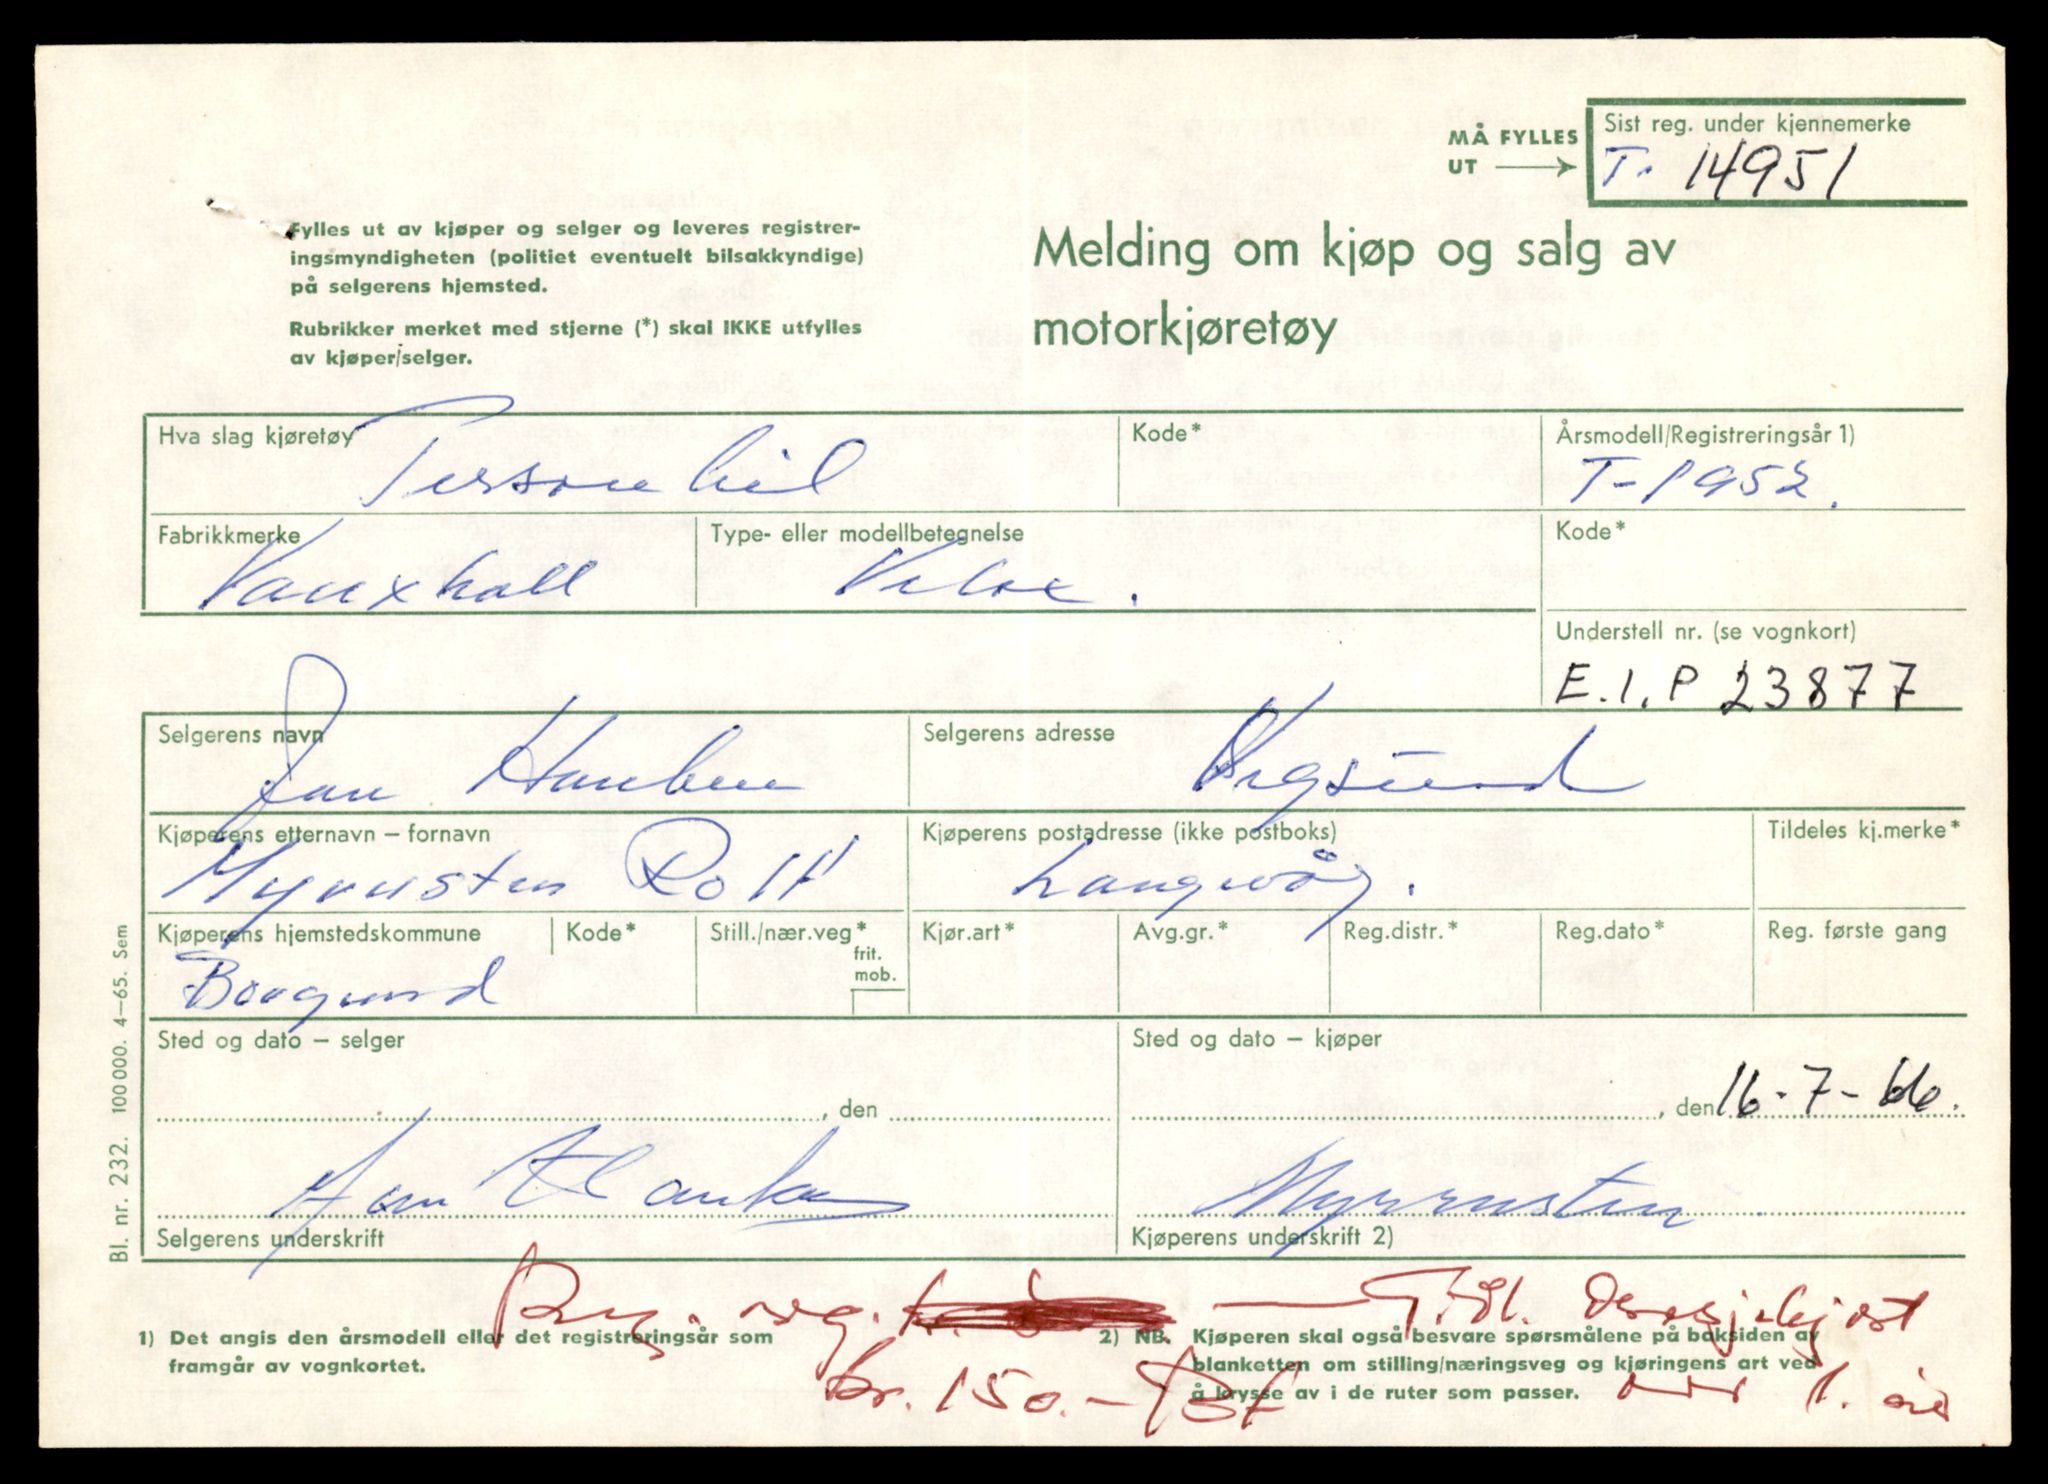 MÅ FYLLES
UT
Sist reg. under kjennemerke
T. 14951
Fylles ut av kjøper og selger og leveres registrer-
ingsmyndigheten (politiet eventuelt bilsakkyndige)
på selgerens hjemsted.
Rubrikker merket med stjerne (*) skal IKKE utfylles
av kjøper/selger.
Melding om kjøp og salg av
motorkjøretøy
Hva slag kjøretøy
Personbil
Kode*
Årsmodell/Registreringsår 1)
T-1952.
Fabrikkmerke
Vauxhall
Type- eller modellbetegnelse
Velox.
Kode*
Understell nr. (se vognkort)
E.I.P 23877
Selgerens navn
Jan
Selgerens adresse
Vegsund
Kjøperens etternavn – fornavn
Rolf
Kjøperens postadresse (ikke postboks)
Langevåg.
Tildeles kj.merke*
Kjøperens hjemstedskommune
Borgund
Kode*
Still./nær.veg*
frit.
mob.
Kjør.art*
Avg.gr.*
Reg.distr.*
Reg.dato*
Reg. første gang
Sted og dato – selger
, den
Selgerens underskrift
Sted og dato – kjøper
, den 16-7-66.
Kjøperens underskrift 2)
reg.
kr. 150.-
1. år
1) Det angis den årsmodell eller det registreringsår som
framgår av vognkortet.
2) NB. Kjøperen skal også besvare spørsmålene på baksiden av
blanketten om stilling/næringsveg og kjøringens art ved
å krysse av i de ruter som passer.
Bl. nr. 232. 100 000. 4–65. Sem